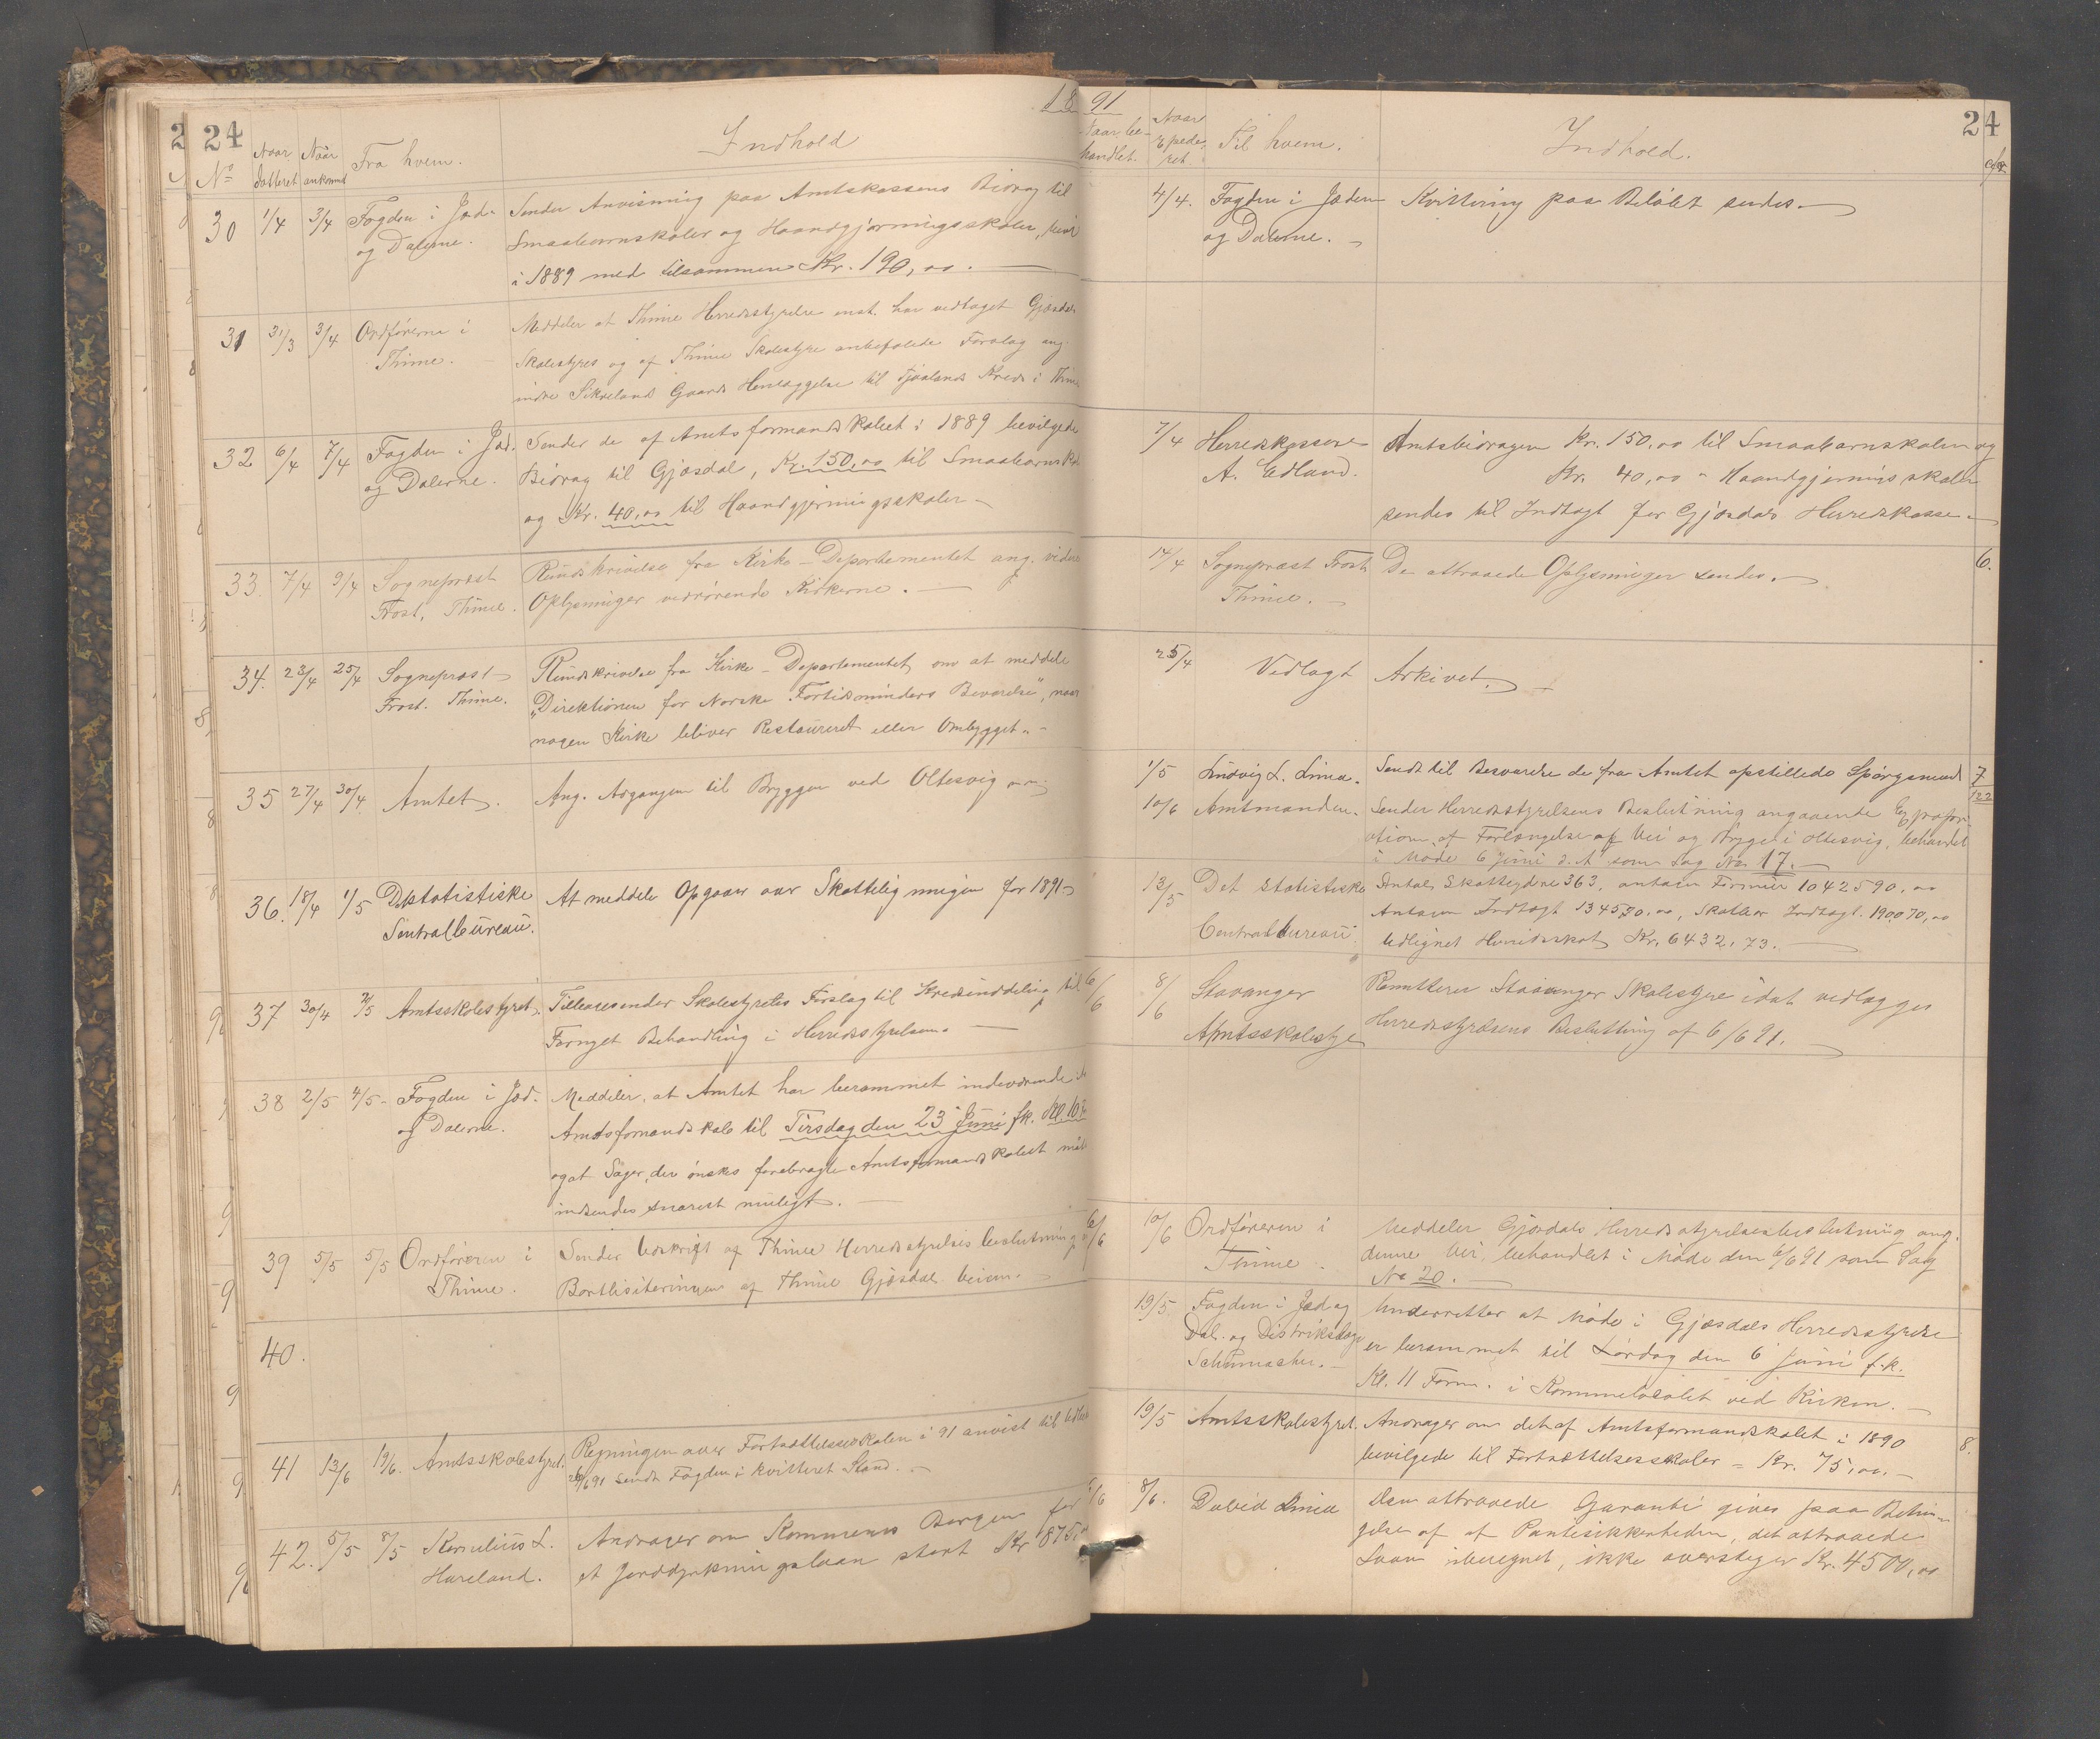 24
1891
Nº
Naar Datteret
Naar ankommet
Fra hvem.
Indhold
30 1/4 3/4 Fogden i Jæd. og Dalerne.
Sender Anvisning paa Amtskassens Bidrag til
Smaabarnskoler og Haandgjerningsskoler,
i 1889 med tilsammen Kr. 190,00.
31 31/3 3/4 Ordføreren i Thime.
Meddeler at Thime Herredsstyrelse enst. har vedtaget Gjæsdals
Skolestyres og af Thime Skolestyre anbefalede Forslag ang.
indre Gaards Henlæggelse til Kreds i Thime
32 6/4 7/4 Fogden i Jæd. og Dalerne.
Sender de af Amtsformandskabet i 1889 bevilgede
Bidrag til Gjæsdal, Kr. 150,00 til Smaabarnsk
og Kr. 40,00 til Haandgjerningsskoler
33. 7/4 9/4 Sogneprest Frost, Thime.
Rundskrivelse fra Kirke-Departementet ang. videre
Oplysninger vedrørende Kirkerne.
34. 23/4 25/4 Sogneprest Frost. Thime.
Rundskrivelse fra Kirke-Departementet om at meddele
"Direktionen for Norske Fortidsminders Bevarelse", naar
nogen Kirke bliver Restaureret eller Ombygget.
35 27/4 30/4 Amtet.
Ang. Adgangen til Bryggen ved Oltesvig
36. 18/4 1/5 Dt statistiske Sentralbureau.
At meddele Opgaver over Skatteligningen for 1891
37 30/4 Amtsskolestyret.
Tilbagesender Skolestyrets Forslag til Kredsinddeling til
Fornyet Behandling i Herredsstyrelsen.
38 2/5 4/5 Fogden i Jæd. og Dalerne.
Meddeler, at Amtet har berammet indeværende
Amtsformandskab til Tirsdag den 23 Juni fk. Kl. 10
ogat Sager, der ønskes forebragte Amtsformandskabet maa
indsendes snarest muligt.
39 5/5 5/5 Ordføreren i Thime.
Sender Udskrift af Thime Herredsstyrelses beslutning
Bortlisiteringen af Thime Gjæsdal Veien.
40.
41 13/6 19/6. Amtsskolestyret.
Regningen over Fortsættelsesskolen i 91 anvist til
26/6 91 Sendt Fogden i kvitteret Stand.
42. 5/5 8/5 Kornelius L. Haveland.
Andrager om Kommunens Borgen for
et Jorddyrkningslaan stort Kr 875,00
Naar behandlet.
Naar Expederet
Til hvem.
Indhold.
24
4/4. Fogden i Jæderen og Dalerne.
Kvittering paa Beløbet sendes.
7/4 Herredskasserer A. Edland.
Amtsbidragene Kr. 150,00 til Smaabarnskolen og
Kr. 40,00 " Haandgjerningsskolen
sendes til Indtægt for Gjæsdals Herredskasse.
14/4 Sogneprest Frost Thime.
De attraaede Oplysninger sendes.
6.
25/4 Vedlagt Arkivet.
1/5 Ludvig L. Lima.
Sendt til Besvarelse de fra Amtet opstillede Spørgsmaal
7
122
10/6 Amtmanden.
Sender Herredsstyrelsens Beslutning angaaende Expropri-
ation af Forlængelse af Vei og Brygge i Oltesvig, behandlet
i Møde 6 Juni d. A. som Sag No. 17.
13/5 Det statistiske Centralbureau
Antal Skatteydere 363, antagen Formue 1042590,00
Antagen Indtægt 134530,00, Skatbar Indtægt. 190070,00
Udlignet Herredsskat Kr. 6432,73.
6/6 8/6 Stavanger Amtsskolestyre
Remitterer Stavanger Skolestyre idet vedlægges
Herredsstyrelsens Beslutning af 6/6 91.
6/6 10/6 Ordføreren i Thime.
Meddeler Gjæsdals Herredsstyrelses beslutning ang.
denne Vei, behandlet i Møde den 6/6 91 som Sag
No 20.
19/5. Fogden i Jæd og Dal. og Distriktslæge Schumacher.
Underretter at Møde i Gjæsdals Herredsstyrelse
er berammet til Lørdag den 6 Juni f.k.
Kl. 11 Form. i Kommunelokalet ved Kirken.
19/5 Amtsskolestyret.
Andrager om det af Amtsformandskabet i 1890
bevilgede til Fortsættelsesskoler = Kr. 75,00.
8.
6/6 8/6. David Lima
Den attraaede Garanti gives paa Betin-
gelse af at Pantesikkerheden, det attraaede
Laan iberegnet, ikke overstiger Kr. 4500,00